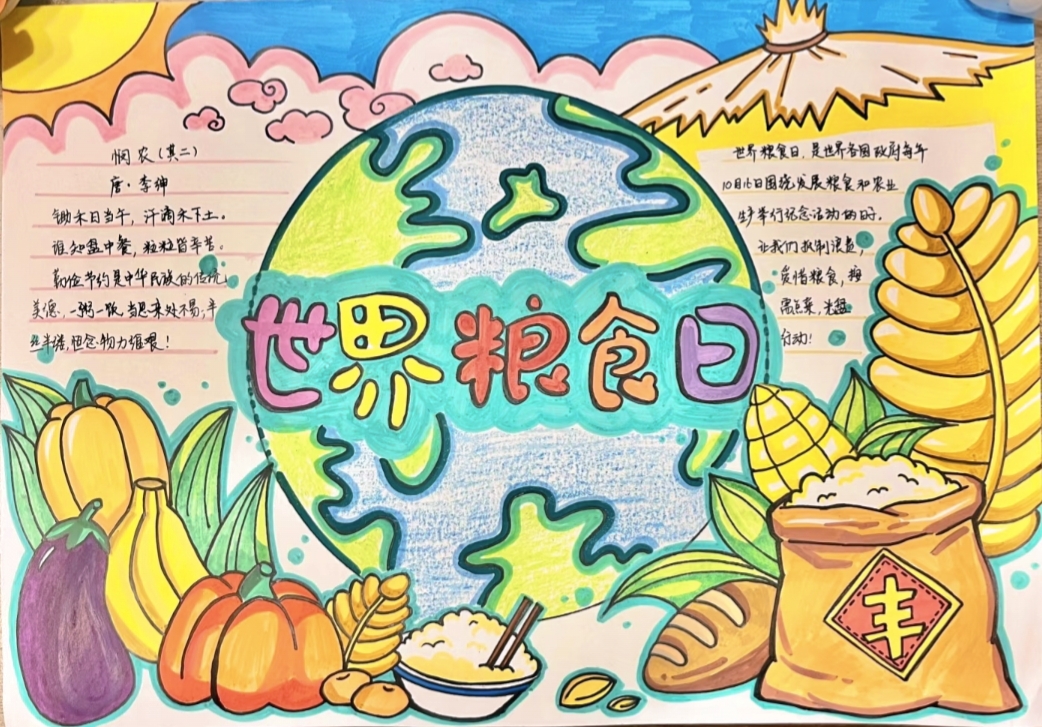 悯农（其二）
唐·李绅
锄禾日当午，汗滴禾下土。
谁知盘中餐，粒粒皆辛苦。
勤俭节约是中华民族的传统
美德，一粥一饭，当思来处不易；半
丝半缕，恒念物力维艰！
世界粮食日
世界粮食日，是世界各国政府每年
10月16日围绕发展粮食和农业
生产举行纪念活动的日子。
让我们抵制浪费，
爱惜粮食，按
需点菜，光盘
行动！
丰